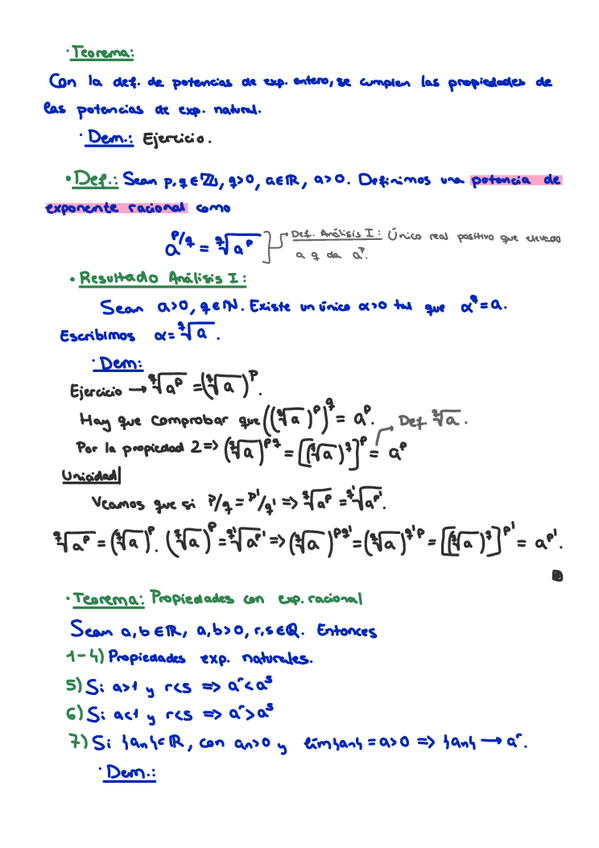 · Teorema:
Con la def. de potencias de exp. entero, se cumplen las propiedades de
las potencias de exp. natural.
· Dem.: Ejercicio.
• Def.: Sean p,q ∈ ℤ, q>0, a∈ℝ, a>0. Definimos una potencia de
exponente racional como
a^{p/q} = \sqrt[q]{a^p} → Def. Análisis I: Único real positivo que elevado
a q da a^p.
• Resultado Análisis I:
Sean a>0, q∈ℕ. Existe un único α>0 tal que α^q = a.
Escribimos α = \sqrt[q]{a}.
· Dem:
Ejercicio → \sqrt[q]{a^p} = (\sqrt[q]{a})^p.
Hay que comprobar que ((\sqrt[q]{a})^p)^q = a^p. Def \sqrt[q]{a}.
Por la propiedad 2 => (\sqrt[q]{a})^{pq} = [(\sqrt[q]{a})^q]^p = a^p
Unicidad
Veamos que si p/q = p'/q' => \sqrt[q]{a^p} = \sqrt[q']{a^{p'}}.
\sqrt[q]{a^p} = (\sqrt[q]{a})^p. (\sqrt[q]{a})^p = \sqrt[q']{a^{p'}} => (\sqrt[q]{a})^{pq'} = (\sqrt[q]{a})^{q'p} = [(\sqrt[q]{a})^q]^{p'} = a^{p'}.
· Teorema: Propiedades con exp. racional
Sean a,b ∈ ℝ, a,b>0, r,s ∈ ℚ. Entonces
1-4) Propiedades exp. naturales.
5) Si a>1 y r<s => a^r < a^s
6) Si a<1 y r<s => a^r > a^s
7) Si {an} ⊂ ℝ, con an>0 y lim{an} = a>0 => {an} → a^r.
· Dem.: